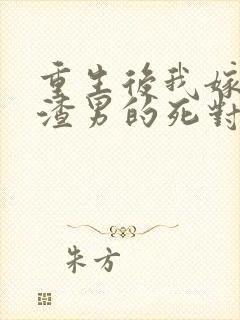 重生後我嫁
渣男的死對
朱方